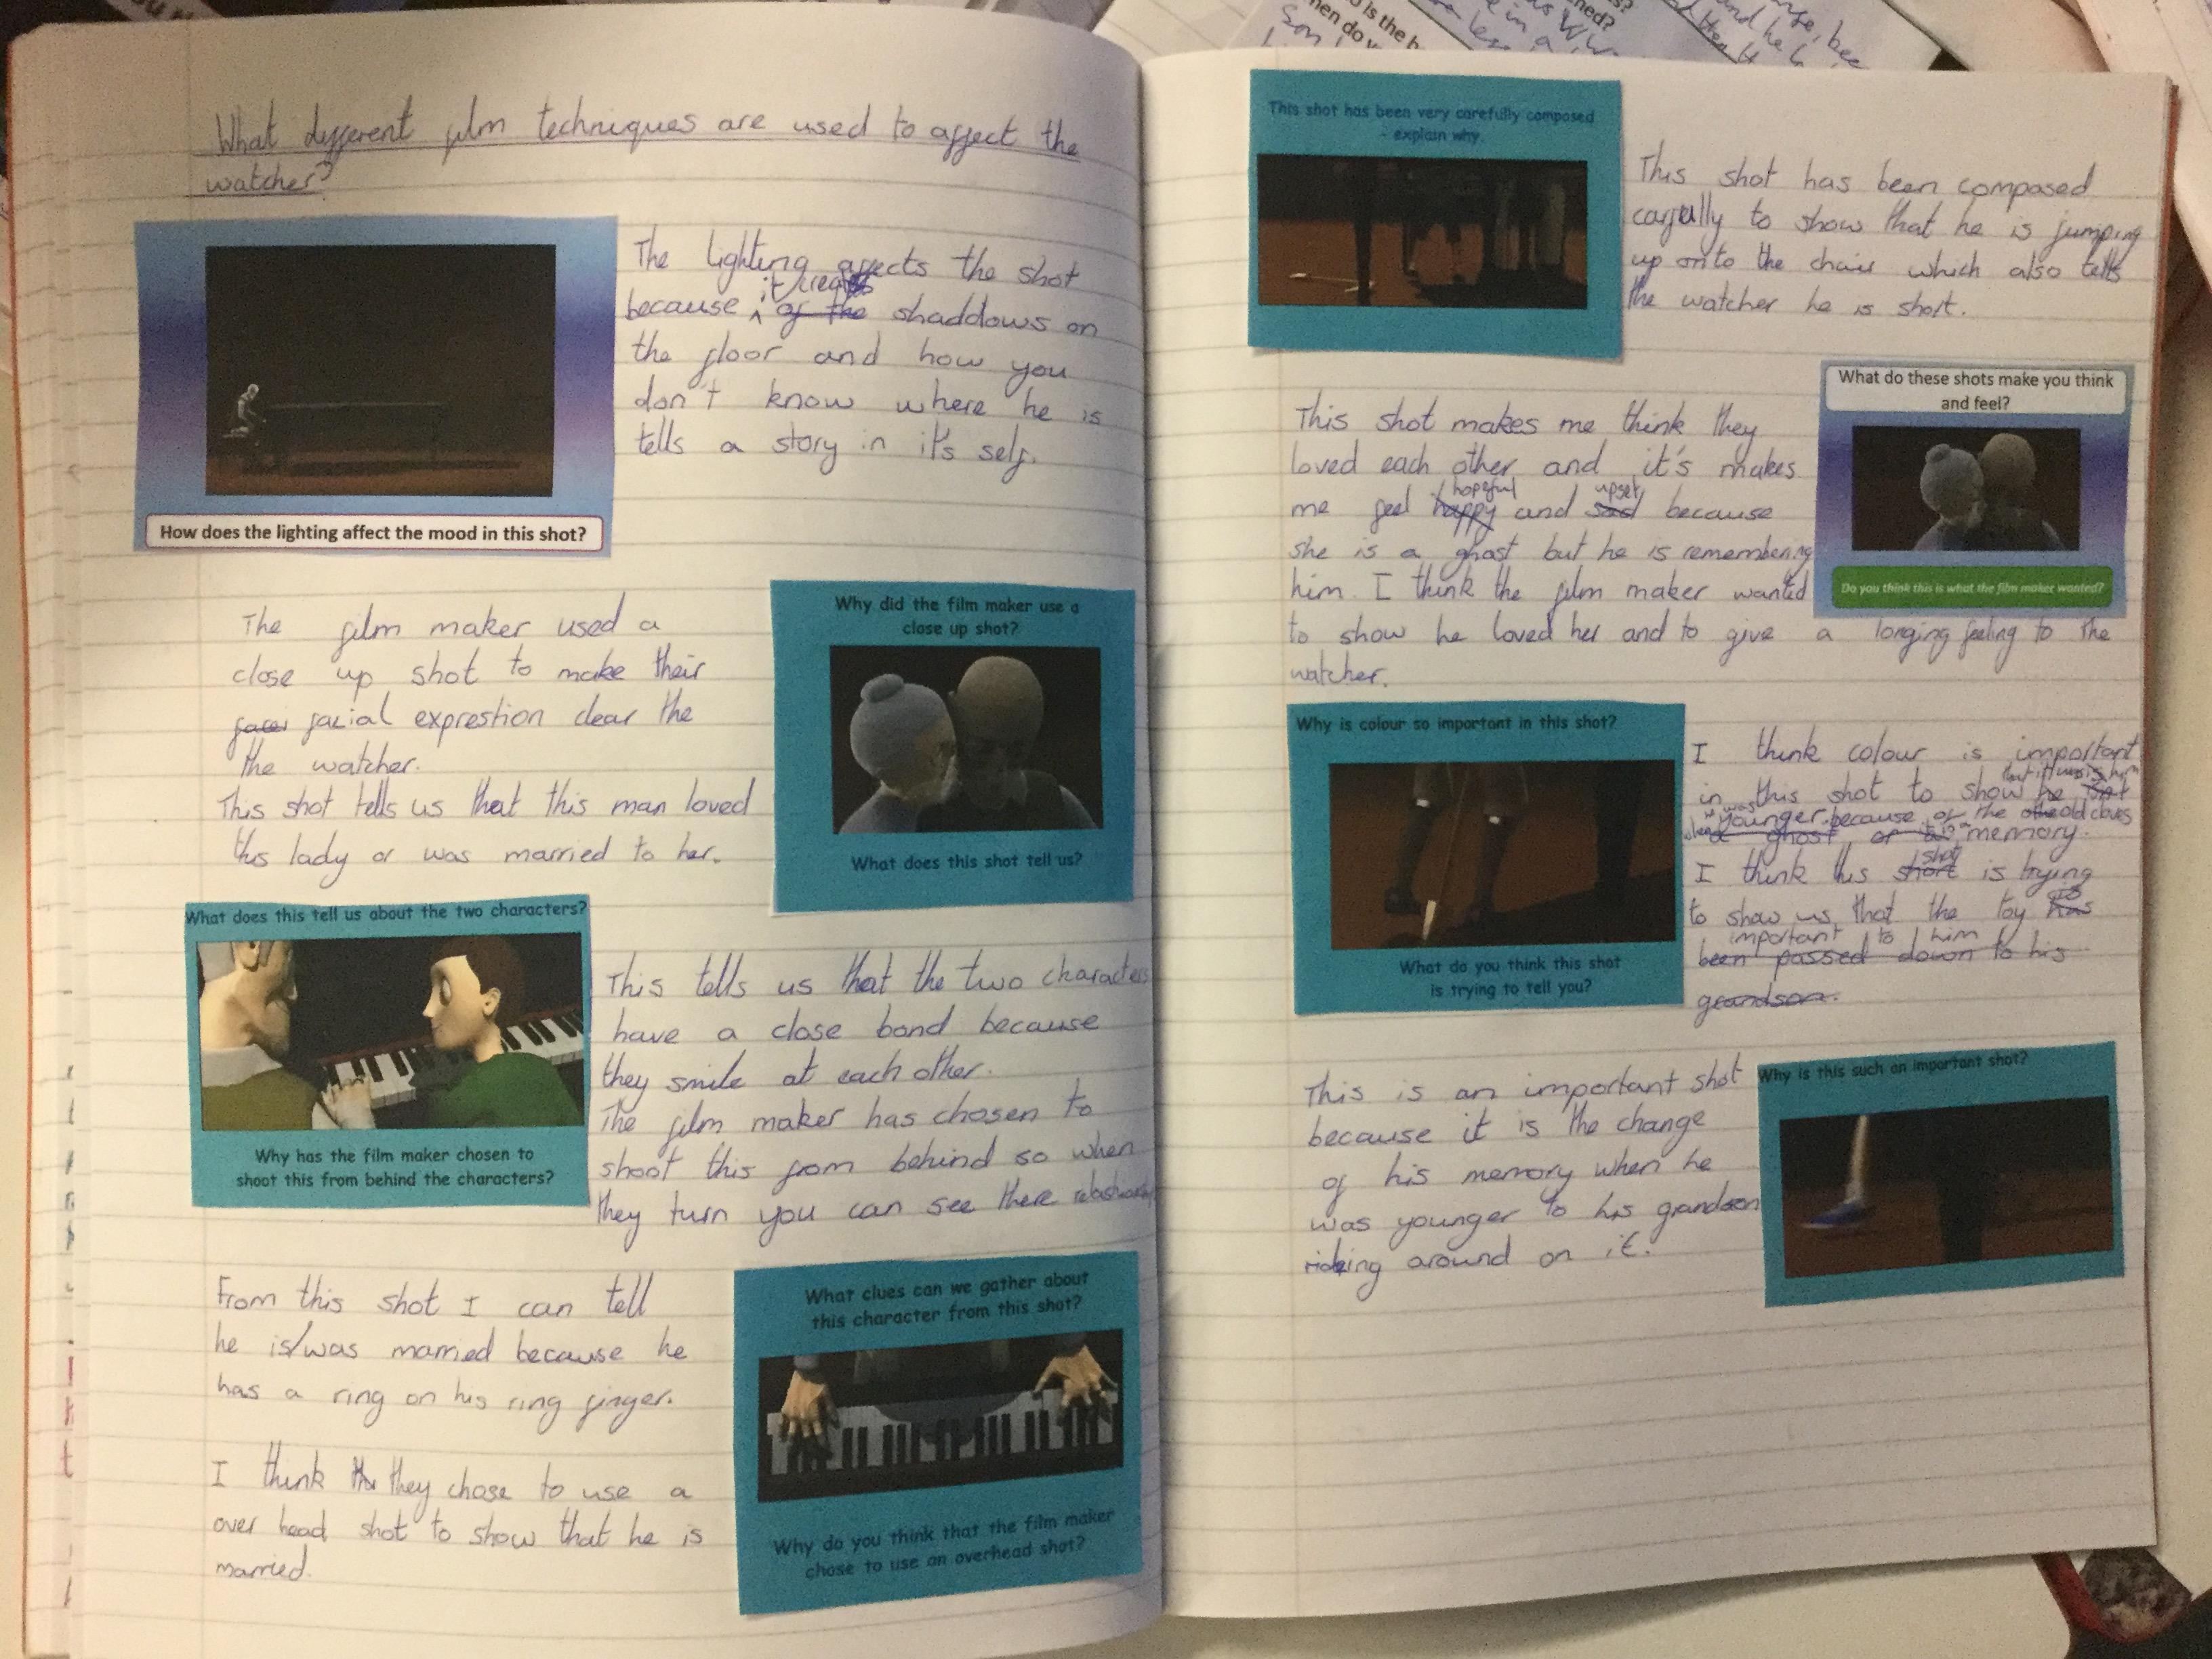 What different film techniques are used to affect the
watcher?
How does the lighting affect the mood in this shot?
The lighting affects the shot
it creates
because ^ of the shaddows on
the floor and how you
don't know where he is
tells a story in it's self.
The film maker used a
close up shot to make their
faces facial exprestion clear the
the watcher.
This shot tells us that this man loved
this lady or was married to her.
Why did the film maker use a
close up shot?
What does this shot tell us?
What does this tell us about the two characters?
Why has the film maker chosen to
shoot this from behind the characters?
This tells us that the two characters
have a close bond because
they smile at each other.
The film maker has chosen to
shoot this from behind so when
they turn you can see there relationship
From this shot I can tell
he is/was married because he
has a ring on his ring finger.
I think they chose to use a
over head shot to show that he is
married.
What clues can we gather about
this character from this shot?
Why do you think that the film maker
chose to use an overhead shot?
This shot has been very carefully composed
- explain why.
This shot has been composed
carfully to show that he is jumping
up onto the chair which also tells
the watcher he is short.
This shot makes me think they
loved each other and it's makes
hopeful upset
me feel happy and sad because
she is a ghost but he is remembering
him. I think the film maker wanted
to show he loved her and to give a longing feeling to the
watcher.
What do these shots make you think
and feel?
Do you think this is what the film maker wanted?
Why is colour so important in this shot?
What do you think this shot
is trying to tell you?
I think colour is important
in this shot to show he
younger because of the old
a ghost or memory.
shot
I think this short is trying
to show us that the toy has
important to him
been passed down to his
grandson.
This is an important shot
because it is the change
of his memory when he
was younger to his grandson
riding around on it.
Why is this such an important shot?